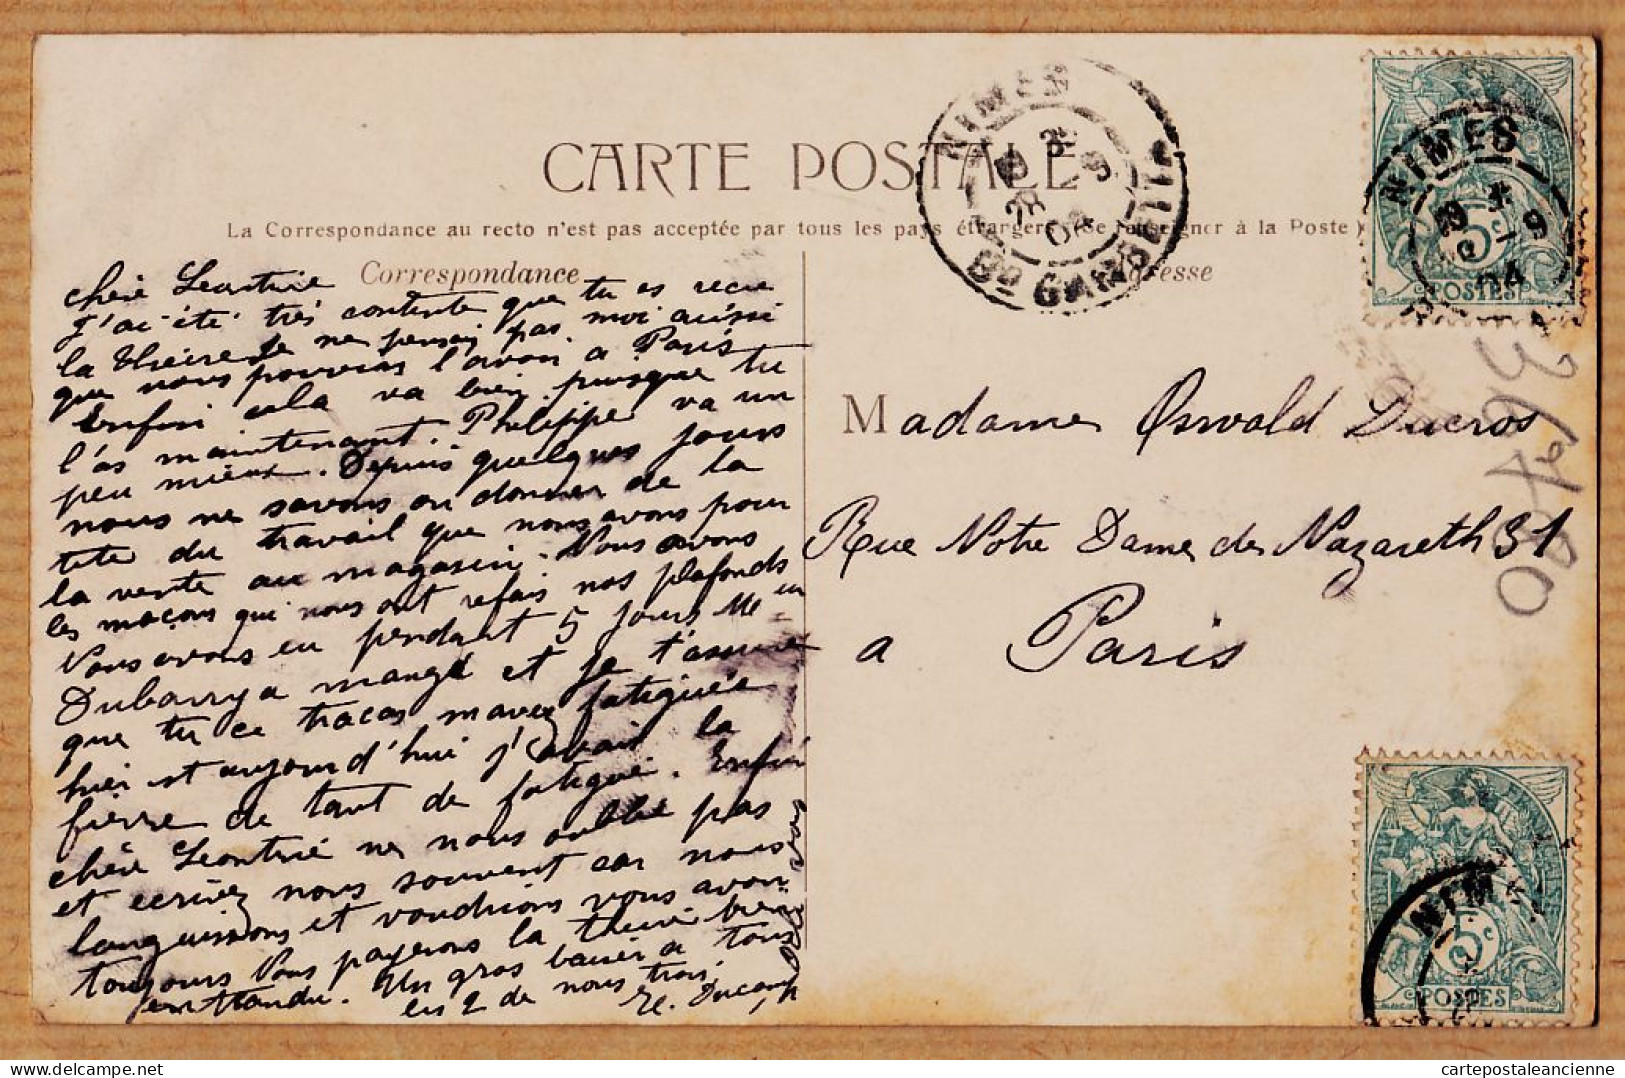 CARTE POSTALE
La Correspondance au recto n'est pas acceptée par tous les pays étrangers (Se renseigner à la Poste)
Correspondance
Adresse
chère Leontine
J'ai été très contente que tu es recu
la theire Je ne pensai pas moi aussi
que nous pouvions l'avoir a Paris
Enfin cela va bien puisque tu
l'as maintenant. Philippe va un
peu mieux. Depuis quelques jours
nous ne savons ou donner de la
tete du travail que nous avons pour
la vente au magasin. Nous avons
les maçons qui nous ont refais nos plafonds
Nous avons eu pendant 5 jours Me un
Dubarry a mangé et je t'assure
que tu ce tracas m'avez fatiguée
hier et aujourd'hui j'avais la
fièvre de tant de fatigue. Enfin
chère Leontine ne nous oublie pas
et ecrivez nous souvent car nous
languissons et voudrions vous avoir
toujours Vous payerons la theire bien
entendu. Un gros baiser a tous
les 2 de nous trois.
Madame Oswald Ducros
Rue Notre Dame de Nazareth 31
a Paris
NIMES
28 -9
04
Bd GAMBETTA
NIMES
-9
04
5c
POSTES
NIM
5c
POSTES
cartepostaleancienne